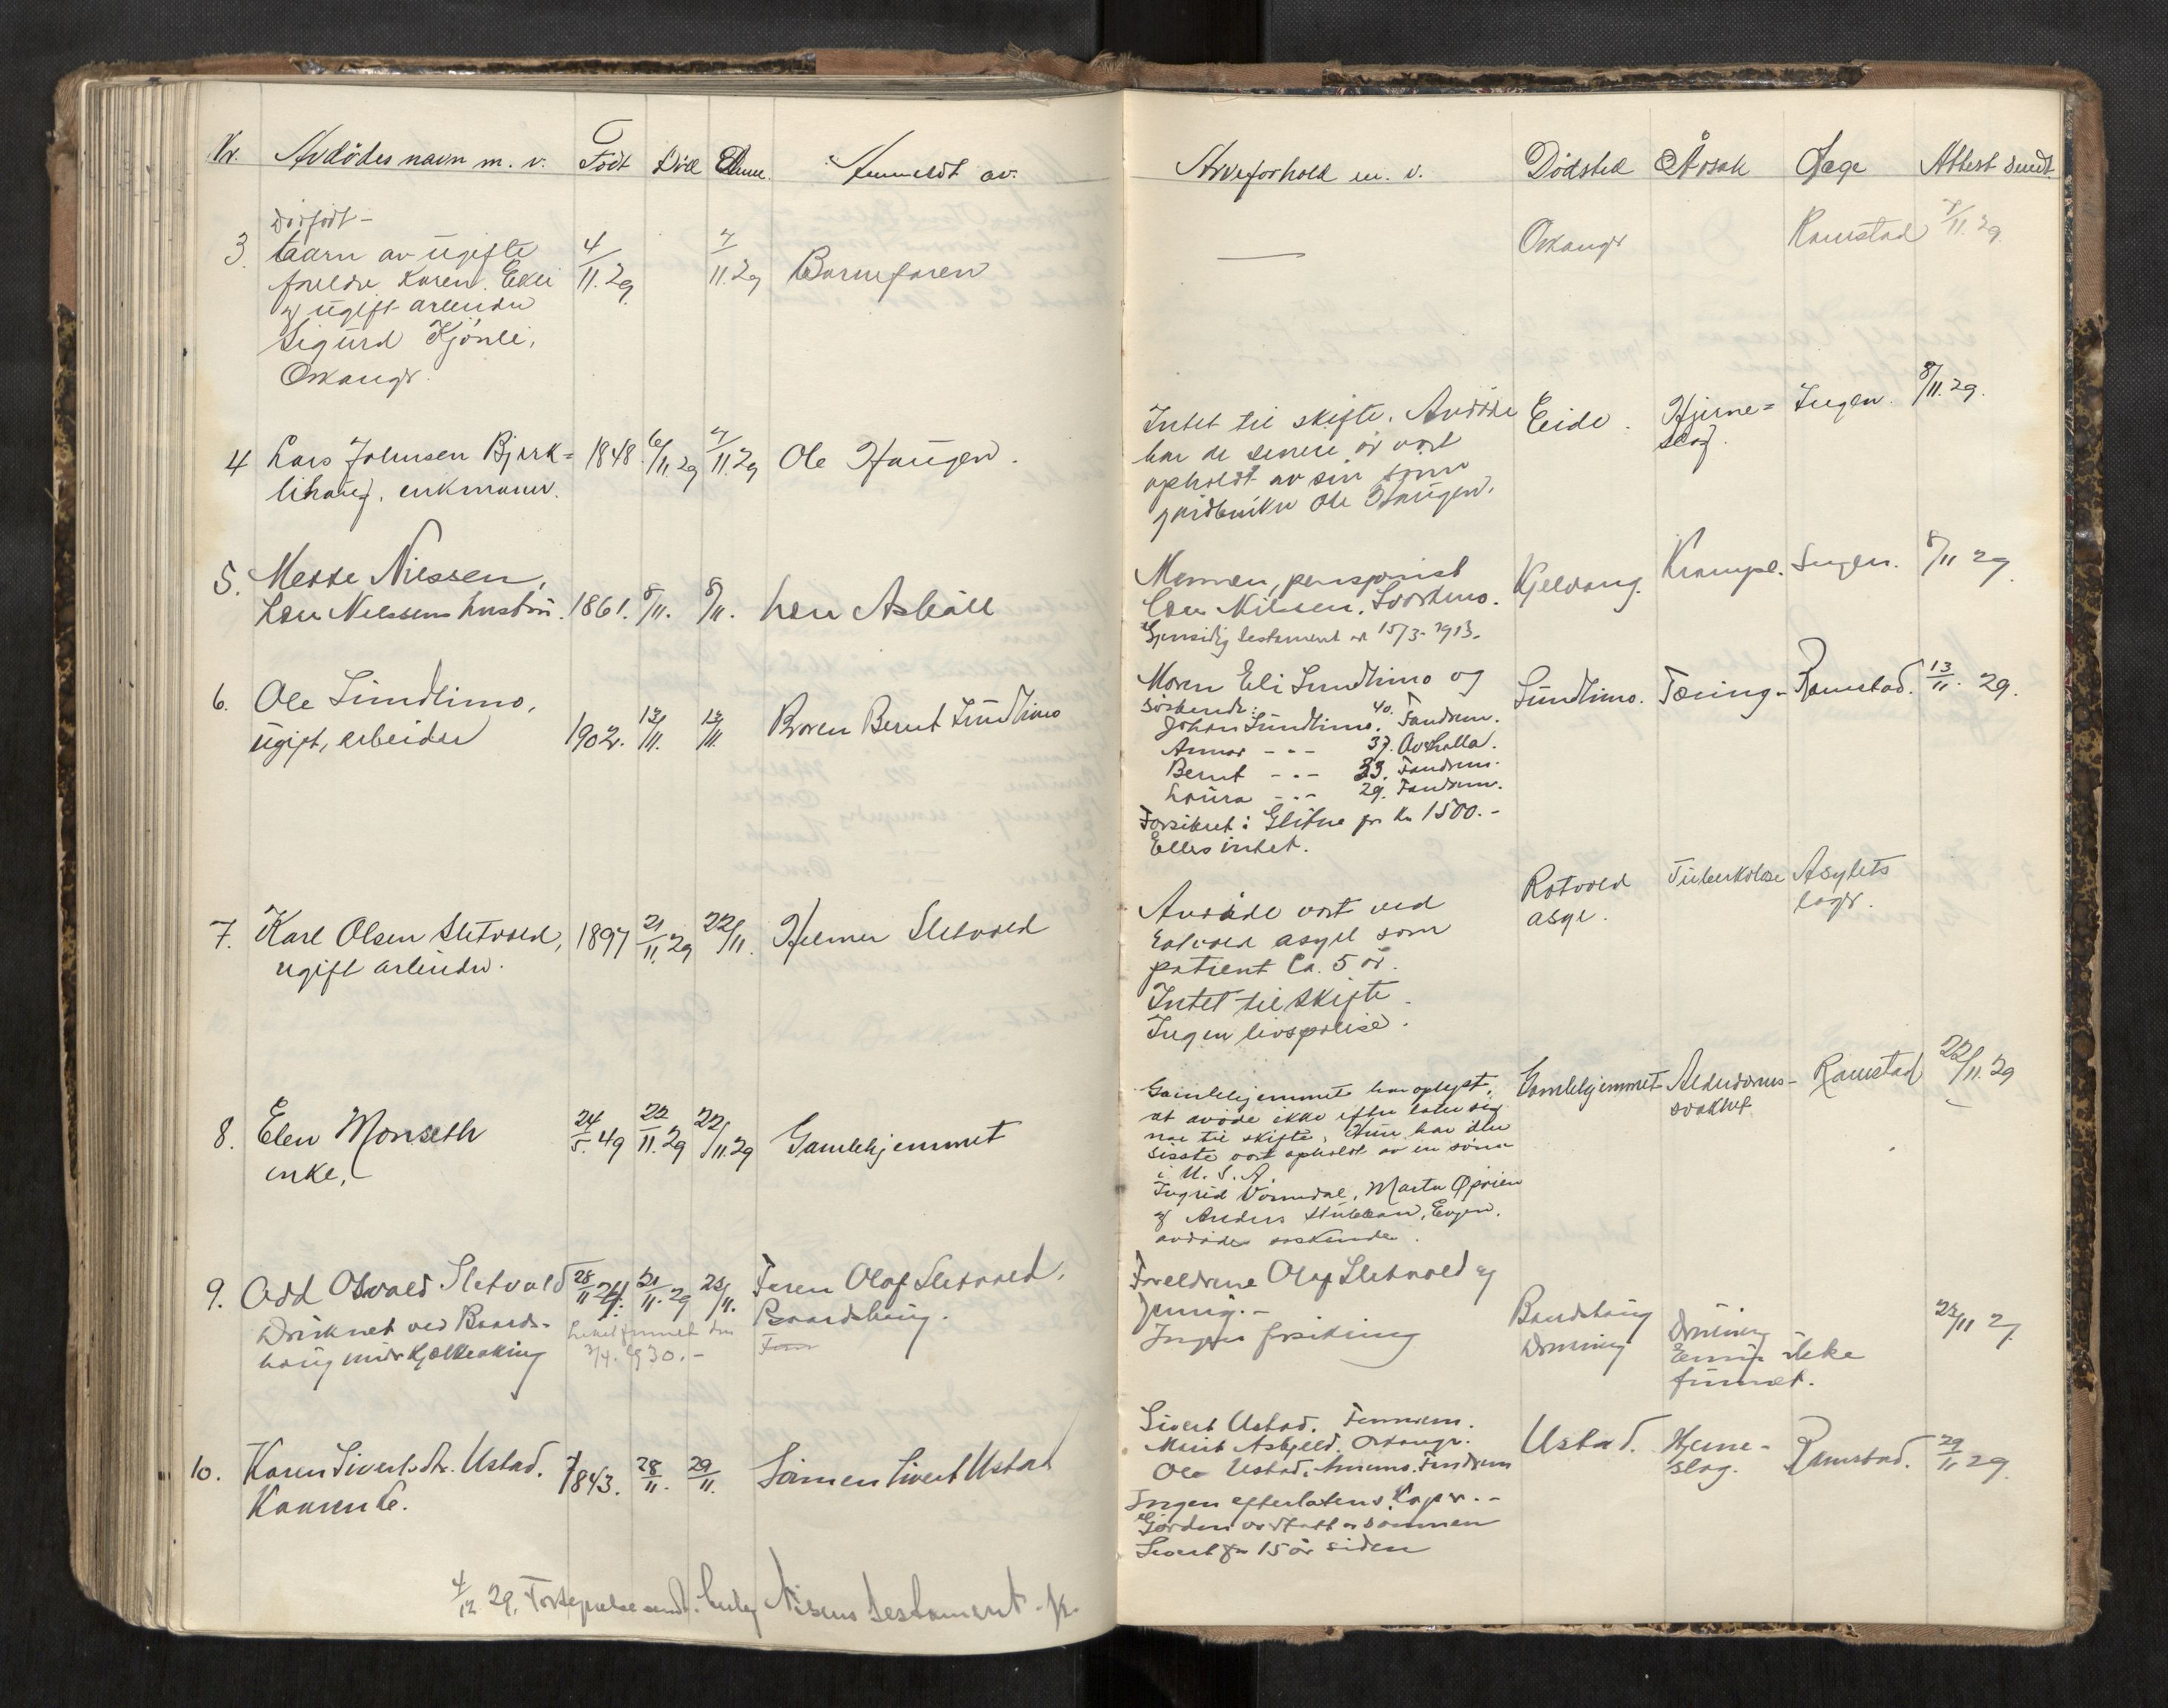 Nr. Avdödes navn m. v. Født Död Anm. Anmeldt av
Arveforhold m. v. Dödsted Årsak Læge Attest sendt
Dödfödt -
3. barn av ugifte 4/11.29 7/11.29 Barnefaren
foreldre Karen Ekli
og ugift arbeider
Sigurd Kjönli,
Orkangr.
— Orkangr Ramstad 7/11.29
4 Lars Johnsen Bjørk= 1848 6/11.29 7/11.29 Ole Haugen.
lihaug, enkmann.
Intet til skifte. Avdöde Eide. Hjerne= Ingen. 8/11.29.
har de senere år vært slag.
opholdt av sin sønn
gårdbruker Ole Haugen.
5. Mette Nilssen, 1861. 8/11. 8/11. Lars Asbøll
Nilssens hustru.
Mannen, pensjonist Kjelvang. Ingen. 8/11 29
Nilssen, Svorkmo.
Gjensidig testament av 15/3-1913.
6. Ole Sundlimo, 1902. 12/11. 13/11. Broren Bernt Sundlimo
ugift, arbeider
Moren Eli Sundlimo og Sundlimo. Tæring- Ramstad. 13/11. 29.
söskende:
Johan Sundlimo, 40. Fandrem.
- - - 37.
Bernt - - - 33. Fandrem.
Laura - - - 29. Fandrem.
Forsikret i Glitne for kr 1500.-
Ellers intet.
7. Karl Olsen Sletvold, 1897 21/11.29 22/11. Helmer Sletvold
ugift arbeider.
Avdöde vært ved Rotvold Tuberkolose Asylets
Rotvold asyl som asyl. læge.
patient ca. 5 år.
Intet til skifte.
Ingen livspolise.
8. Elen Monseth 24/5.49 22/11.29 22/11.29 Gamlehjemmet
enke,
Gamlehjemmet har oplyst, Gamlehjemmet Alderdoms- Ramstad 22/11.29
at avdöde ikke efterlater sig svakhet
noe til skifte. Hun har den
sisste vært opholdt av en sönn
i U. S. A.
Ingrid Vormdal, Marta
og Anders Stubban, Evjen.
avdödes söskende.
9. Odd Osvald Sletvold 28/11 24. 21/11.29 23/11. Faren Olaf Sletvold,
Druknet ved Baards- Liket funnet den Baardshaug.
haug under kjelkeaking 3/4. 1930.-
Foreldrene Olaf Sletvold og
Ingen forsikring Baardshaug Drukning 23/11 29
Drukning Ennu ikke
funnet.
10. Karen Sivertsdtr. Ustad. 1843. 28/11. 29/11. Sönnen Sivert Ustad
Kaarenke.
Sivert Ustad. Fannrem. Ustad. Hjerne- Ramstad. 29/11 29.
Marit Asbjell. Orkangr. slag.
Ole Ustad, Fandrem
Ingen efterlatens. -
Gården sönnen
Sivert for 15 år siden
4/12 29. sendt. Nilsens testament.